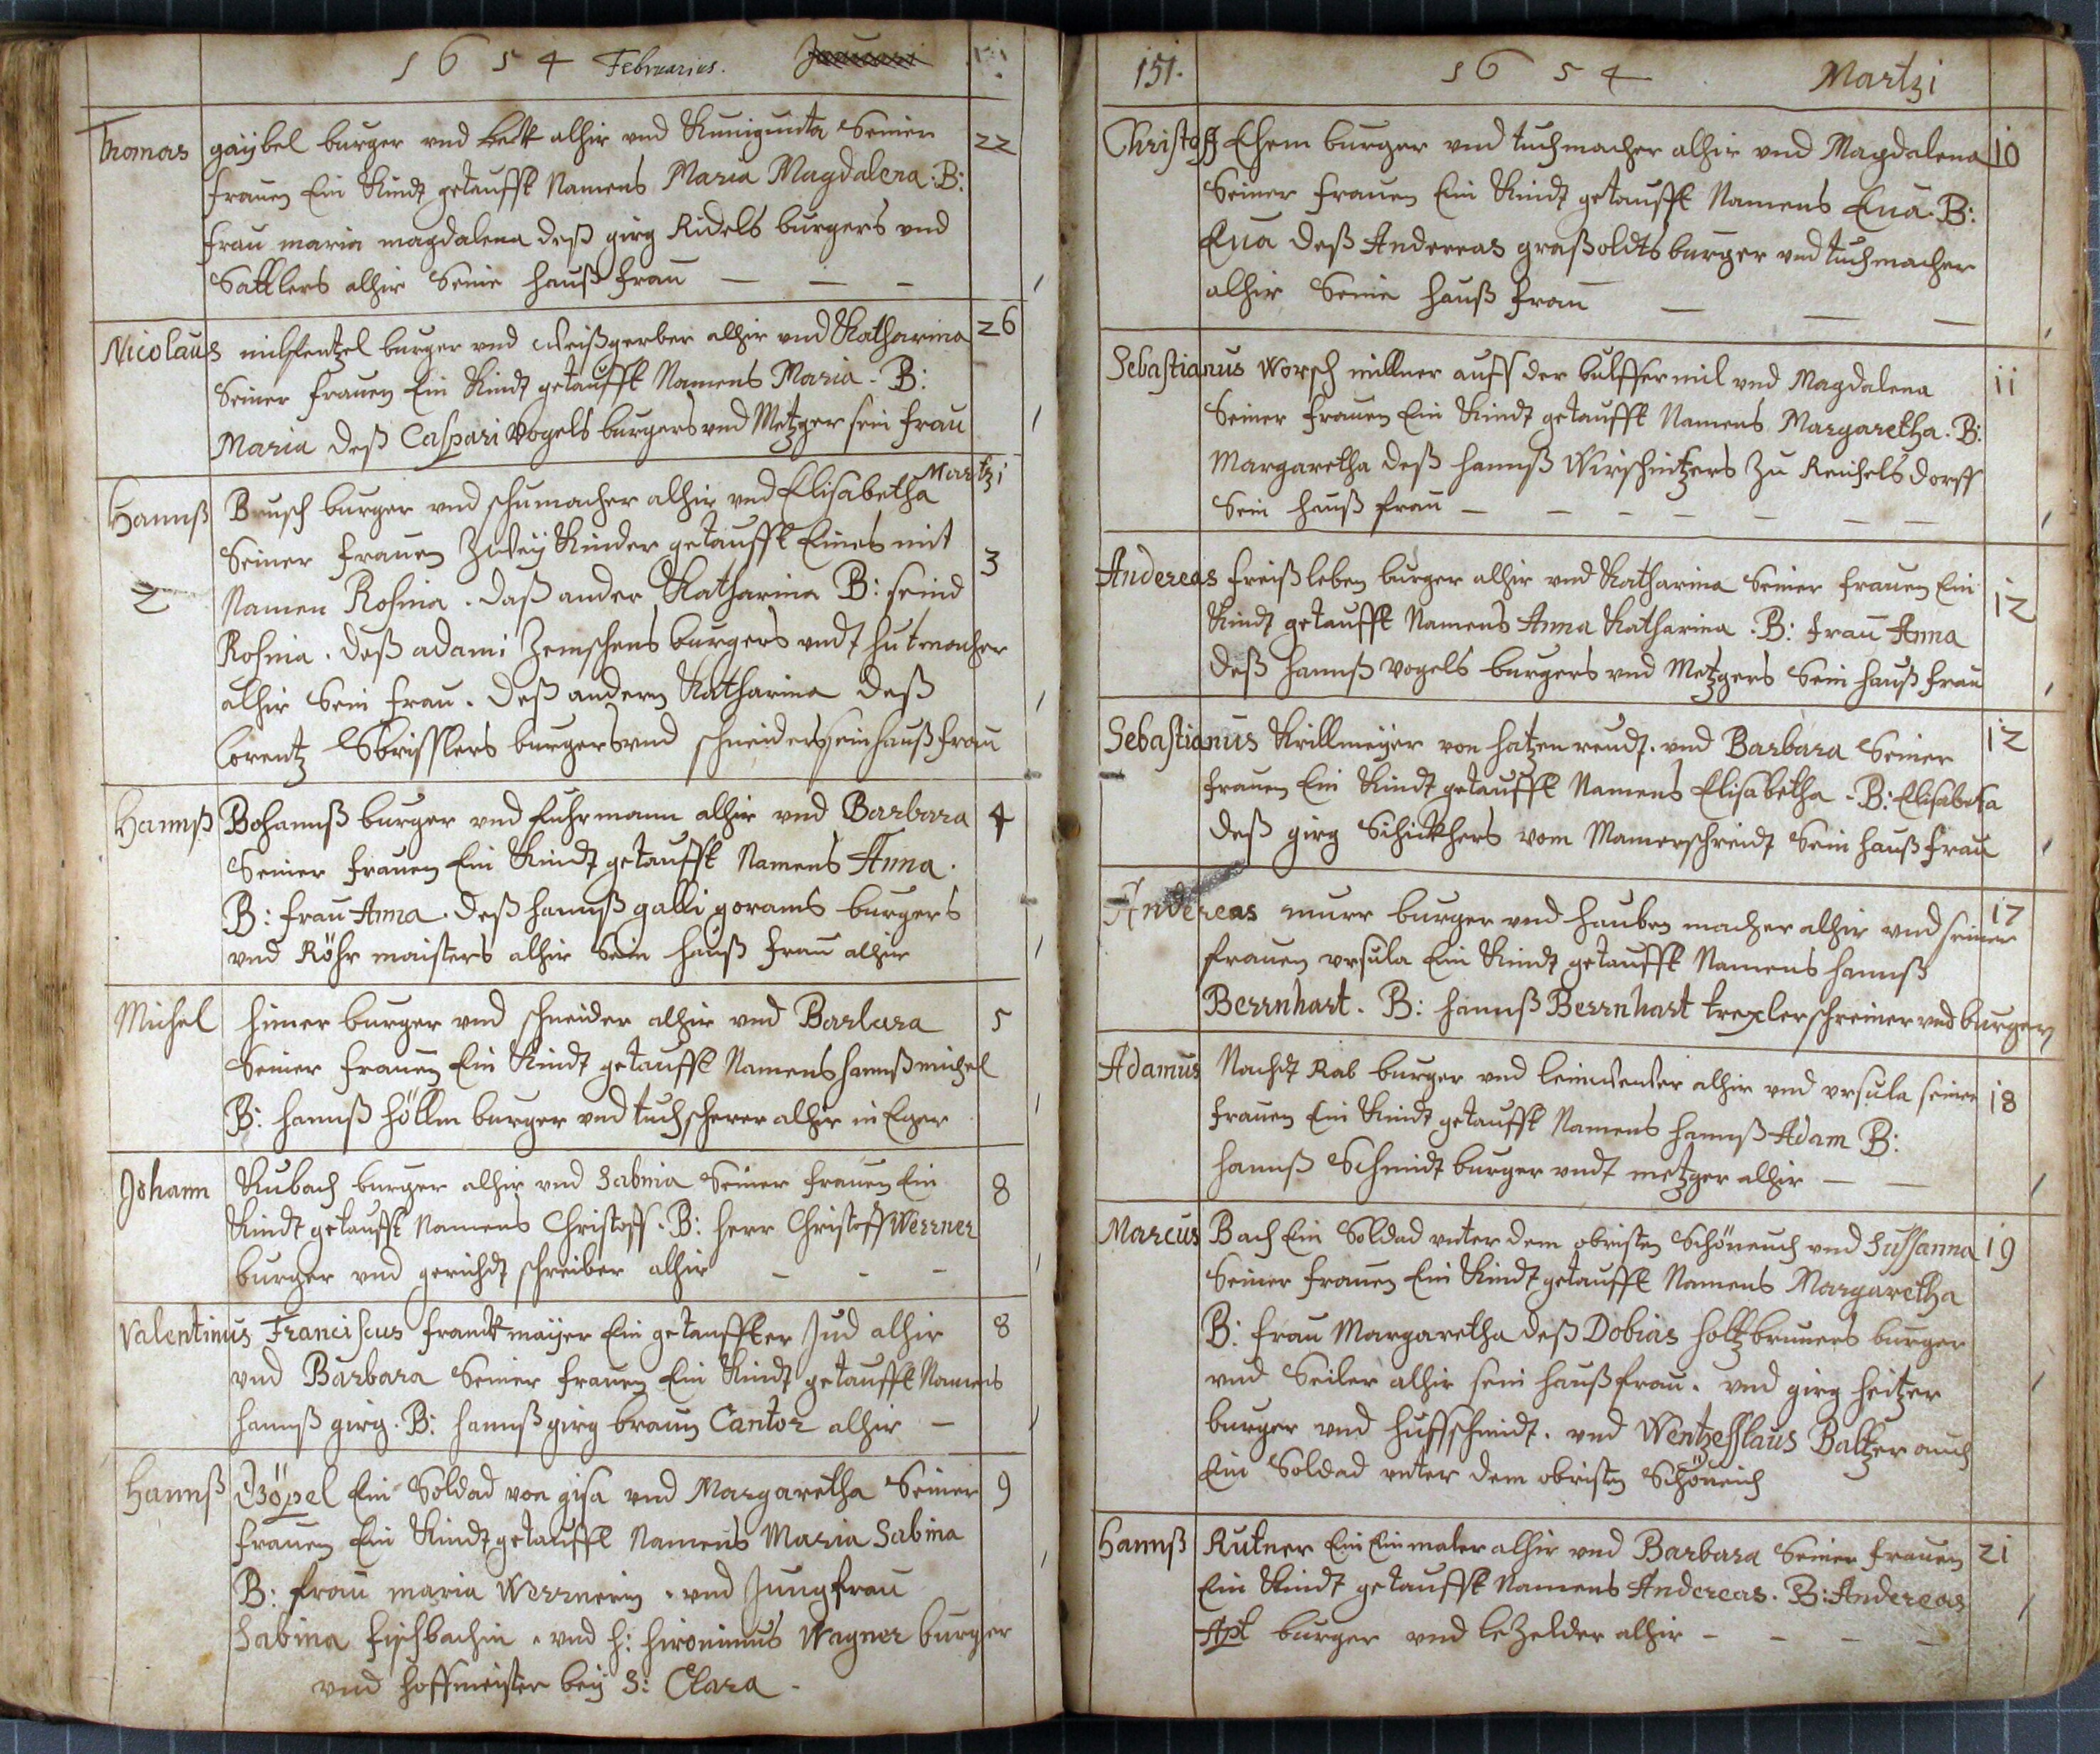 1654 Februarius. Januari
Thomas gaÿbel burger vnd beck alhir vnd Kunigunta Seiner 22
frauen Ein Kindt getaufft Namens Maria Magdalena. B:
frau maria magdalena deß girg Ridels burgers vnd
Sattlers alhir Seine hauß frau — — —
Nicolaus burger vnd Weißgerber alhir vnd Katharina 26
Seiner frauen Ein Kindt getaufft Namens Maria. B:
Maria deß Caspari Vogels burgers vnd Metzger sein frau
Martzi
Hannß Brusch burger vnd schumacher alhir vnd Elisabetha
Seiner frauen Zweÿ Kinder getaufft Eines mit 3
2 Namen Rosina. daß ander Katharina B: seind
Rosina. deß adami Zemschens burgers vndt hutmacher
alhir Sein frau. deß andern Katharina deß
Lorentz burgers vnd schneiders sein hauß frau
Hannß Bohannß burger vnd fuhrmann alhir vnd Barbara 4
Seiner frauen Ein Kindt getaufft Namens Anna.
B: frau Anna. deß hannß galli gorams burgers
vnd Röhr maisters alhir Sein hauß frau alhir
Michel himer burger vnd schneider alhir vnd Barbara 5
Seiner frauen Ein Kindt getaufft Namens hannß michel
B: hannß höllm burger vnd tuchscherer alhir in Eger
Johann Rubach burger alhir vnd Sabina Seiner frauen Ein 8
Kindt getaufft Namens Christoff. B: herr Christoff Werrner
burger vnd gerichdt schreiber alhir - - -
Valentinus Franciscus franckmaÿer Ein getauffter Jud alhir 8
vnd Barbara Seiner frauen Ein Kindt getaufft Namens
hannß girg. B: hannß girg braun Cantor alhir —
Hannß Göpel Ein Soldad von gisa vnd Margaretha Seiner 9
frauen Ein Kindt getaufft Namens Maria Sabina
B: frau maria Werrnerin. vnd Jungfrau
Sabina fischbachin. vnd h: hironimus Wagner burger
vnd hoffmeister beÿ S: Clara.
151. 1654 Martzi
Christoff Ehem burger vnd tuchmacher alhir vnd Magdalena 10
Seiner frauen Ein Kindt getaufft Namens Eua. B:
Eua deß Andereas graßoldts burger vnd tuchmacher
alhir Seine hauß frau — — —
Sebastianus Worsch millner auff der bulffermil vnd Magdalena 11
Seiner frauen Ein Kindt getaufft Namens Margaretha. B:
Margaretha deß hannß Wirschnitzers Zu Reichelsdorff
Sein hauß frau — — — — — — —
Andereas freißleben burger alhir vnd Katharina Seiner frauen Ein 12
Kindt getaufft Namens Anna Katharina. B: frau Anna
deß hannß vogels burgers vnd Metzgers Sein hauß frau
Sebastianus Krillmeÿer von hatzenreudt. vnd Barbara Seiner 12
frauen Ein Kindt getaufft Namens Elisabetha. B: Elisabetha
deß girg Schickhers vom Mamerschreidt Sein hauß frau
Andereas murr burger vnd hauben macher alhir vnd seiner 17
frauen vrsula Ein Kindt getaufft Namens hannß
Berrnhart. B: hannß Berrnhart trexler schreiner vnd burger
Adamus Nachdt Rab burger vnd leinweber alhir vnd vrsula seiner 18
frauen Ein Kindt getaufft Namens hannß Adam B:
hannß Schmidt burger vndt metzger alhir — —
Marcus Bach Ein Soldad vnter dem obristen Schöneuch vnd Sussanna 19
Seiner frauen Ein Kindt getaufft Namens Margaretha
B: frau Margaretha deß Dobias holtzbruners burger
vnd Seiler alhir sein hauß frau. vnd girg heitzer
burger vnd huffschmidt. vnd Wentzesslaus Baltzer auch
Ein Soldad vnter dem obristen Schöneich
Hannß Rutner Ein Einmaler alhir vnd Barbara Seiner frauen 21
Ein Kindt getaufft Namens Andereas. B: Andereas
Apt burger vnd leZelder alhir - - - -